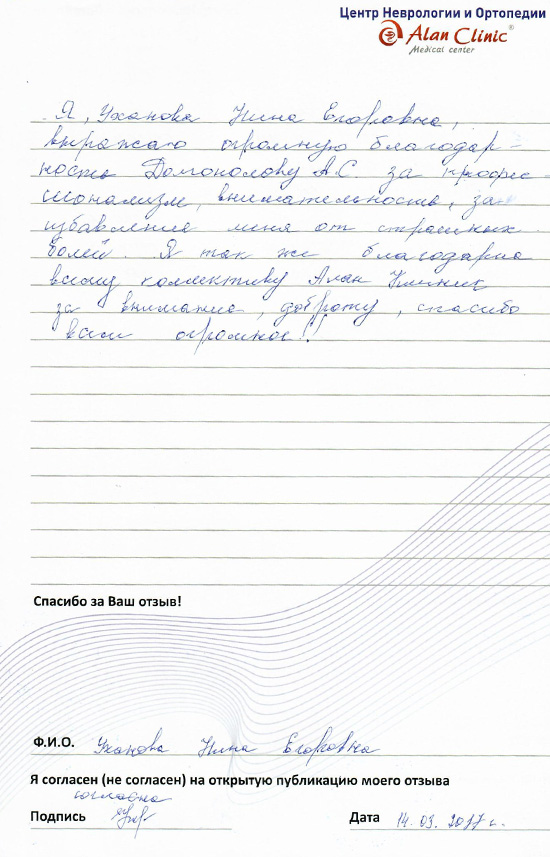 Центр Неврологии и Ортопедии
Alan Clinic®
Medical center
Я, Уханова Нина Егоровна,
выражаю огромную благодар-
ность А.С. за профес-
сионализм, внимательность, за
избавления меня от страшных
болей. Я так же благодарна
всему коллективу Алан Клиник
за внимание, доброту, спасибо
вам огромное!!
Спасибо за Ваш отзыв!
Ф.И.О. Уханова Нина Егоровна
Я согласен (не согласен) на открытую публикацию моего отзыва
согласна
Подпись Дата 14.03.2017 г.